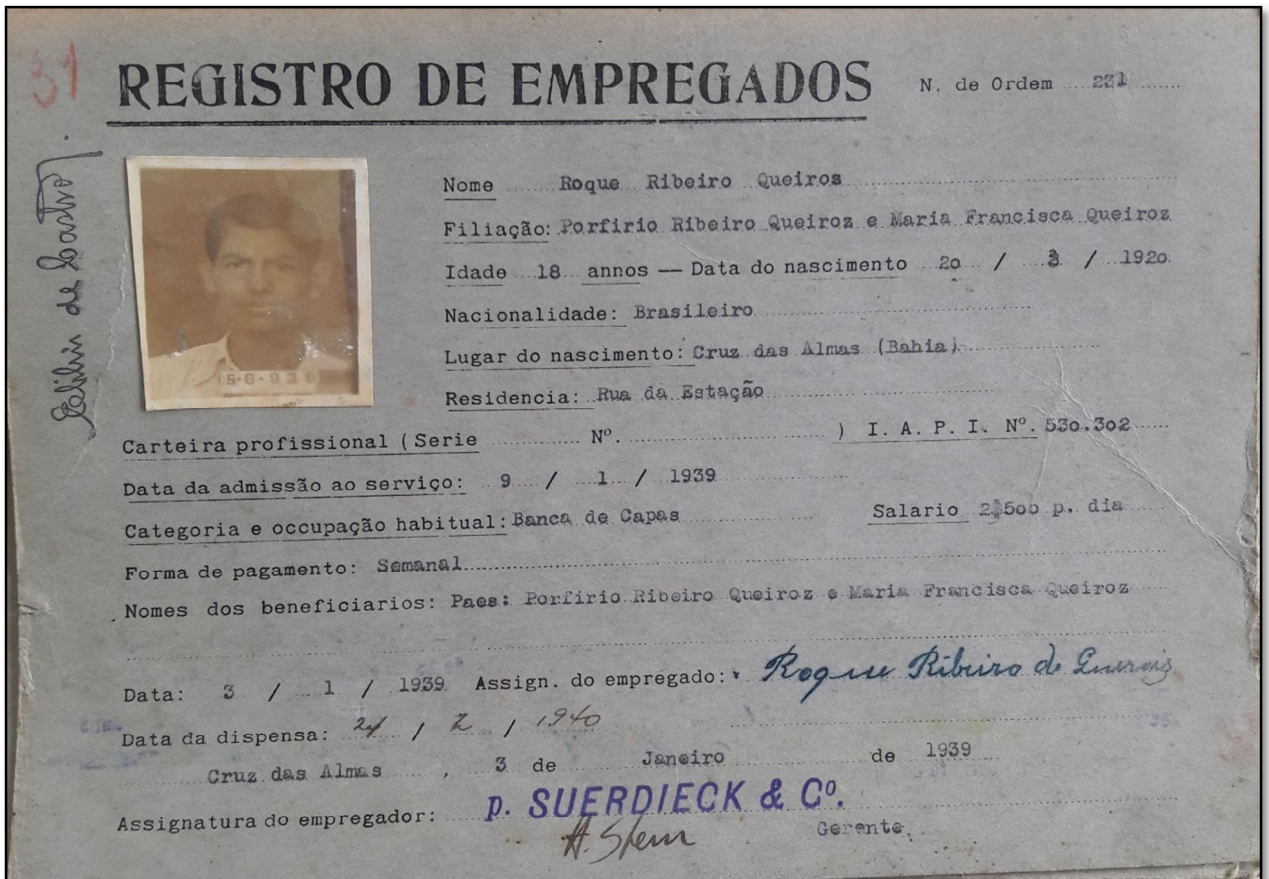 31
REGISTRO DE EMPREGADOS
N. de Ordem 231
de Castro
Nome Roque Ribeiro Queiros
Filiação: Porfirio Ribeiro Queiroz e Maria Francisca Queiroz
Idade 18 annos — Data do nascimento 20 / 3 / 1920
Nacionalidade: Brasileiro
Lugar do nascimento: Cruz das Almas (Bahia)
Residencia: Rua da Estação
Carteira profissional (Serie Nº. ) I. A. P. I. Nº. 530.302
Data da admissão ao serviço: 9 / 1 / 1939
Categoria e occupação habitual: Banca de Capas Salario 2$500 p. dia
Forma de pagamento: Semanal
Nomes dos beneficiarios: Paes: Porfirio Ribeiro Queiroz e Maria Francisca Queiroz
Data: 3 / 1 / 1939 Assign. do empregado: Roque Ribeiro de
Data da dispensa: / 2 / 1940
Cruz das Almas , 3 de Janeiro de 1939
Assignatura do empregador: p. SUERDIECK & Cº.
Gerente